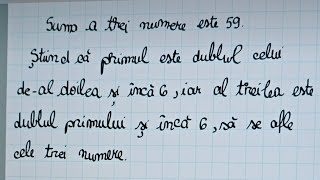 Suma a trei numere este 59.
Știind că primul este dublul celui
de-al doilea și încă 6, iar al treilea este
dublul primului și încă 6, să se afle
cele trei numere.